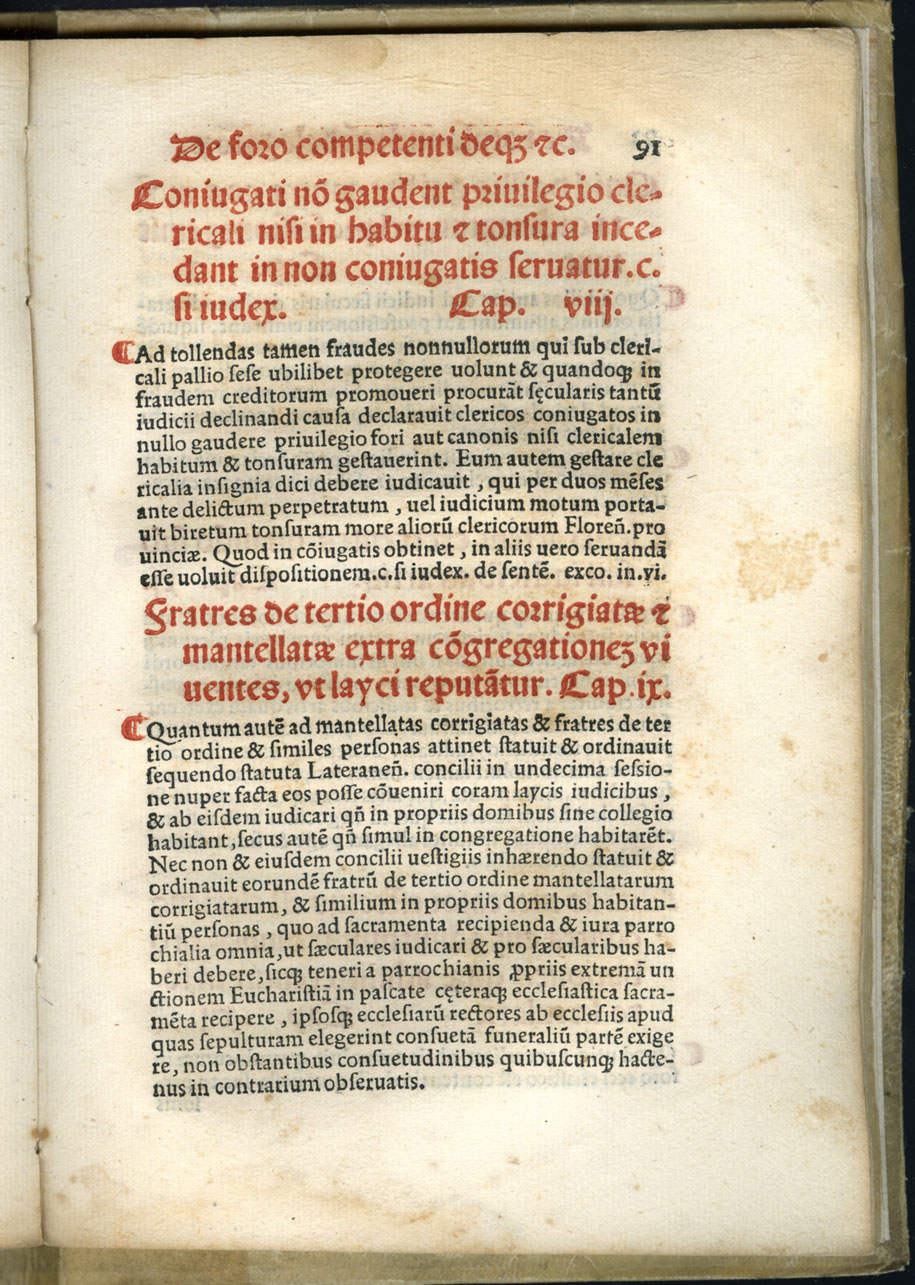 De foro competenti deqꝫ ⁊c. 91
Coniugati nõ gaudent priuilegio cle-
ricali nisi in habitu ⁊ tonsura ince-
dant in non coniugatis seruatur.c.
si iudex. Cap. viij.
¶Ad tollendas tamen fraudes nonnullorum qui sub cleri-
cali pallio sese ubilibet protegere uolunt & quandoqꝫ in
fraudem creditorum promoueri procurãt sęcularis tantũ
iudicii declinandi causa declarauit clericos coniugatos in
nullo gaudere priuilegio fori aut canonis nisi clericalem
habitum & tonsuram gestauerint. Eum autem gestare cle
ricalia insignia dici debere iudicauit, qui per duos mẽses
ante delictum perpetratum, uel iudicium motum porta-
uit biretum tonsuram more aliorũ clericorum Floreñ.pro
uinciæ. Quod in cõiugatis obtinet, in aliis uero seruandã
esse uoluit dispositionem.c.si iudex. de sentẽ. exco. in.vi.
Fratres de tertio ordine corrigiatæ ⁊
mantellatæ extra cõgregationeꝫ vi
uentes, vt layci reputãtur. Cap.ix.
¶Quantum autẽ ad mantellatas corrigiatas & fratres de ter
tio ordine & similes personas attinet statuit & ordinauit
sequendo statuta Lateraneñ. concilii in undecima sessio-
ne nuper facta eos posse cõueniri coram laycis iudicibus,
& ab eisdem iudicari qñ in propriis domibus sine collegio
habitant, secus autẽ qñ simul in congregatione habitarẽt.
Nec non & eiusdem concilii uestigiis inhærendo statuit &
ordinauit eorundẽ fratrũ de tertio ordine mantellatarum
corrigiatarum, & similium in propriis domibus habitan-
tiũ personas, quo ad sacramenta recipienda & iura parro
chialia omnia, ut sæculares iudicari & pro sæcularibus ha-
beri debere, sicqꝫ teneri a parrochianis ꝓpriis extremã un
ctionem Eucharistiã in pascate cęteraqꝫ ecclesiastica sacra-
mẽta recipere, ipsosqꝫ ecclesiarũ rectores ab ecclesiis apud
quas sepulturam elegerint consuetã funeraliũ partẽ exige
re, non obstantibus consuetudinibus quibuscunqꝫ hacte-
nus in contrarium obseruatis.